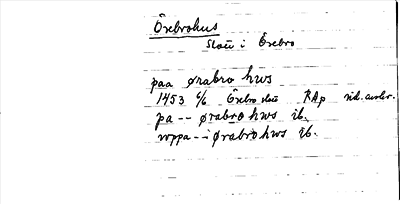 Örebrohus
slott i Örebro
paa ørabro hws
1453 6/6 Örebro slott RAp vid. avskr.
pa -- ørabro hws ib.
wppa -- ørabro hws ib.